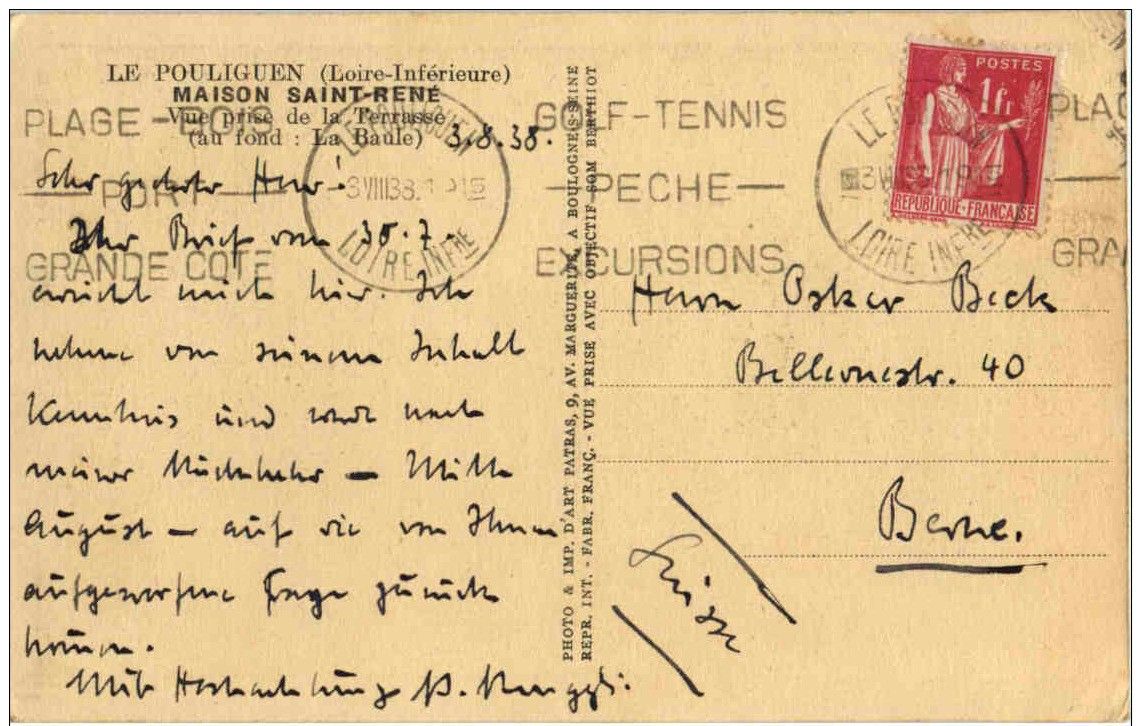 LE POULIGUEN (Loire-Inférieure)
MAISON SAINT-RENÉ
Vue prise de la Terrasse
(au fond : La Baule)
3.8.38.
PLAGE - BOIS
PORT
GRANDE COTE
LE POULIGUEN
3 VIII 38
LOIRE INFRE
GOLF-TENNIS
-PECHE-
EXCURSIONS
POSTES
1fr
REPUBLIQUE-FRANÇAISE
LE
LOIRE INFRE
PLAG
GRAN
Sehr geehrter Herr!
Ihr Brief vom 30.7.
erreicht mich hier. Ich
nehme von seinem Inhalt
Kenntnis und werde nach
meiner Rückkehr – Mitte
August – auf die von Ihnen
aufgeworfene Frage zurück
kommen.
Mit Hochachtung
PHOTO & IMP. D'ART PATRAS, 9, AV. MARGUERITE, A BOULOGNE S-SEINE
REPR. INT. - FABR. FRANÇ. - VUE PRISE AVEC OBJECTIF SOM BERTHIOT
Herrn Oskar Beck
Bellevuestr. 40
Berne.
Suisse